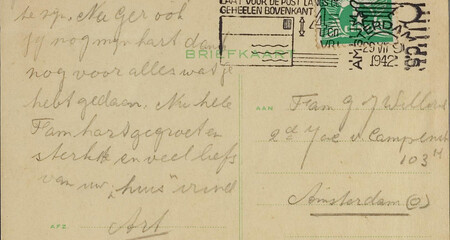 te zijn. Nu Ger ook
jij nog mijn hart dank
nog voor alles wat je
hebt gedaan. Nu hele
Fam hart gegroet en
sterkte en veel liefs
van uw "huis" vriend
Art
AFZ.
BRIEFKAART
LAAT VOOR DE POST
GEHEELEN BOVENKANT
AMSTERDAM
1942
AAN
Fam G. J Willers
2d Jac v. Campenstr
103 H
Amsterdam (Z)